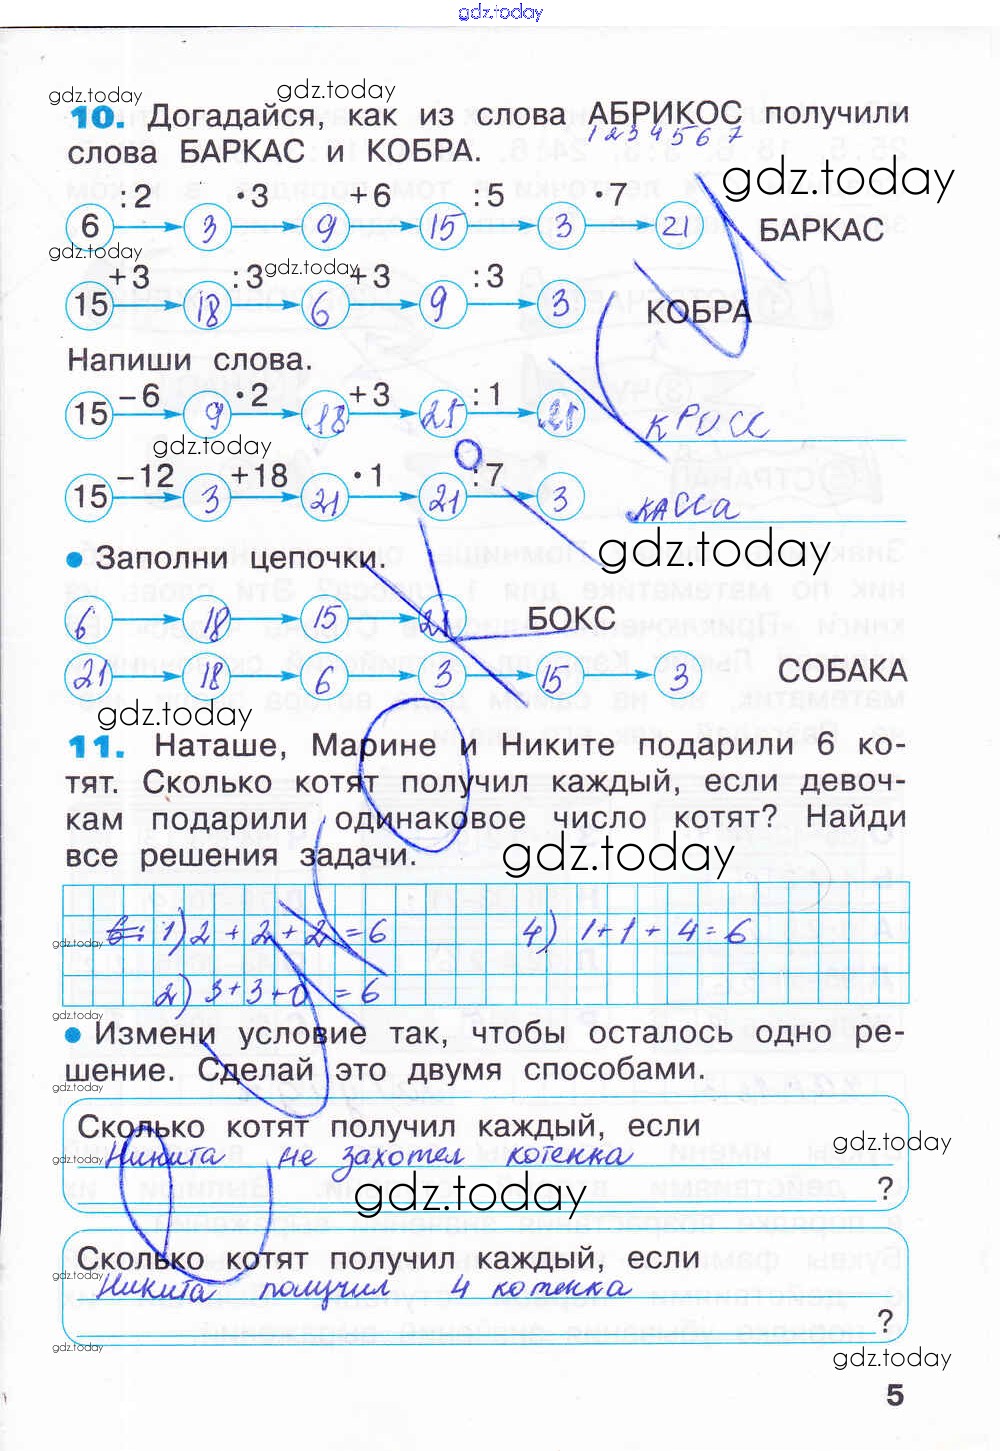 gdz.today
gdz.today gdz.today
10. Догадайся, как из слова АБРИКОС получили
1 2 3 4 5 6 7
слова БАРКАС и КОБРА.
gdz.today
:2 ·3 +6 :5 ·7
6 3 9 15 3 21 БАРКАС
gdz.today gdz.today
+3 :3 +3 :3
15 18 6 9 3 КОБРА
Напиши слова.
−6 ·2 +3 :1
15 9 18 21 21 КРОСС
gdz.today
−12 +18 ·1 :7
15 3 21 21 3 КАССА
gdz.today
• Заполни цепочки.
6 18 15 21 БОКС
21 18 6 3 15 3 СОБАКА
gdz.today
11. Наташе, Марине и Никите подарили 6 ко-
тят. Сколько котят получил каждый, если девоч-
кам подарили одинаковое число котят? Найди
все решения задачи.
gdz.today
1) 2 + 2 + 2 = 6 4) 1 + 1 + 4 = 6
gdz.today
2) 3 + 3 + 0 = 6
gdz.today
• Измени условие так, чтобы осталось одно ре-
шение. Сделай это двумя способами.
gdz.today
Сколько котят получил каждый, если
gdz.today
Никита не захотел котенка
gdz.today
gdz.today
?
gdz.today
Сколько котят получил каждый, если
gdz.today
Никита получил 4 котенка
?
gdz.today
gdz.today
5